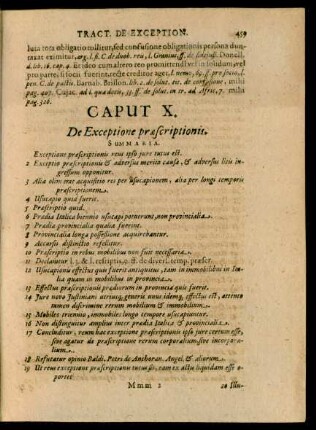 TRACT. DE EXCEPTION. 459
luta tota obligatio tollitur, sed confusione obligationis persona dun-
taxat eximitur, arg. l.
pro parte, si socii fuerint, recte creditor aget, l. nemo, ff. pro socio, l.
pen. C. de pactis. Barnab. Brisson. lib. 2. de solut.
pag. 427. Cujac. ad l. qua dotis, 33. ff. de solut.
pag. 328.
CAPUT X.
De Exceptione præscriptionis.
SUMMARIA.
Exceptione præscriptionis reus ipso jure tutus est.
2 Exceptio præscriptionis & adversus merita causæ, & adversus litis in-
gressum opponitur.
3 Alia olim erat acquisitio rei per usucapionem, alia per longi temporis
præscriptionem.
4 Usucapio quid fuerit.
5 Præscriptio quid.
6 Prædia Italica biennio usucapi poterant, non provincialia.
7 Prædia provincialia qualia fuerint.
8 Provincialia longa possessione acquirebantur.
9 Accursii distinctio refellitur.
10 Præscriptio in rebus mobilibus non fuit necessaria.
11 Declaratur l. 3. & l. rescriptis, 9. ff. de divers. temp. præscr.
12 Usucapionis effectus quis fuerit antiquitus, tam in immobilibus in Ita-
lia quam in mobilibus in provincia.
13 Effectus præscriptionis prædiorum in provincia quis fuerit.
14 Jure novo Justiniani utriusq; generis unus idemq; effectus est, attento
immeo discrimine rerum mobilium & immobilium.
15 Mobiles triennio, immobiles longo tempore usucapiuntur.
16 Non distinguitur amplius inter prædia Italica & provincialia.
17 Concluditur, reum hac exceptione præscriptionis ipso jure tutum esse,
sive agatur de præscriptione rerum corporalium, sive incorpora-
lium.
18 Refutatur opinio Baldi, Petri de Anchoran. Angel. & aliorum.
19 Ut reus exceptione præscriptionis tutus sit, eum ex actu liquidam esse
oportet
Mmm 2 20 Illu-